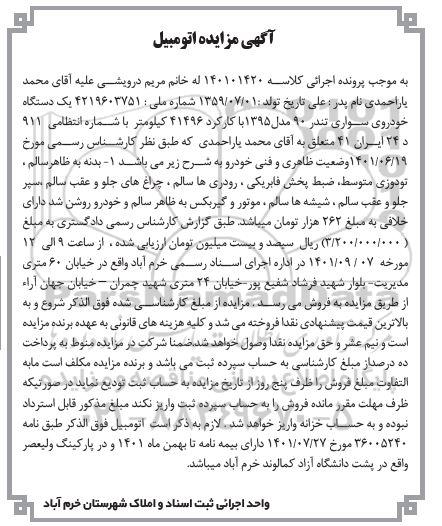 آگهی مزایده اتومبیل
به موجب پرونده اجرائی کلاسه ۱۴۰۱۰۱۴۲۰ له خانم مریم درویشی علیه آقای محمد
یاراحمدی نام پدر : علی تاریخ تولد :۱۳۵۹/۰۷/۰۱ شماره ملی : ۴۲۱۹۶۰۳۷۵۱ یک دستگاه
خودروی سواری تندر ۹۰ مدل۱۳۹۵با کارکرد ۴۱۴۹۶ کیلومتر با شماره انتظامی ۹۱۱
د ۲۴ ایران ۴۱ متعلق به آقای محمد یاراحمدی که طبق نظر کارشناس رسمی مورخ
۱۴۰۱/۰۶/۱۹وضعیت ظاهری و فنی خودرو به شرح زیر می باشد ۱- بدنه به ظاهرسالم ،
تودوزی متوسط، ضبط پخش فابریکی ، رودری ها سالم ، چراغ های جلو و عقب سالم ،سپر
جلو و عقب سالم ، شیشه ها سالم ، موتور و گیربکس به ظاهر سالم و خودرو روشن شد دارای
خلافی به مبلغ ۲۶۲ هزار تومان میباشد. طبق گزارش کارشناس رسمی دادگستری به مبلغ
(۳/۲۰۰/۰۰۰/۰۰۰) ریال سیصد و بیست میلیون تومان ارزیابی شده ، از ساعت ۹ الی ۱۲
مورخه ۰۷ /۱۴۰۱/۰۹ در اداره اجرای اسناد رسمی خرم آباد واقع در خیابان ۶۰ متری
مدیریت- بلوار شهید فرشاد شفیع پور-خیابان ۲۴ متری شهید چمران – خیابان جهان آراء
از طریق مزایده به فروش می رسد. مزایده از مبلغ کارشناسی شده فوق الذکر شروع و به
بالاترین قیمت پیشنهادی نقدا فروخته می شد و کلیه هزینه های قانونی به عهده برنده مزایده
است و نیم عشر و حق مزایده نقدا وصول خواهد شدضمنا شرکت در مزایده منوط به پرداخت
ده درصداز مبلغ کارشناسی به حساب سپرده ثبت می باشد و برنده مزایده مکلف است مابه
التفاوت مبلغ فروش را ظرف پنج روز از تاریخ مزایده به حساب ثبت تودیع نماید در صورتیکه
ظرف مهلت مقرر مانده فروش را به حساب سپرده ثبت واریز نکند مبلغ مذکور قابل استرداد
نبوده و به حساب خزانه واریز خواهد شد. لازم به ذکر است اتومبیل فوق الذکر طبق نامه
۳۶۰۰۵۲۴۰ مورخ ۱۴۰۱/۰۷/۲۷ دارای بیمه نامه تا بهمن ماه ۱۴۰۱ و در پارکینگ ولیعصر
واقع در پشت دانشگاه آزاد کمالوند خرم آباد میباشد.
واحد اجرائی ثبت اسناد و املاک شهرستان خرم آباد